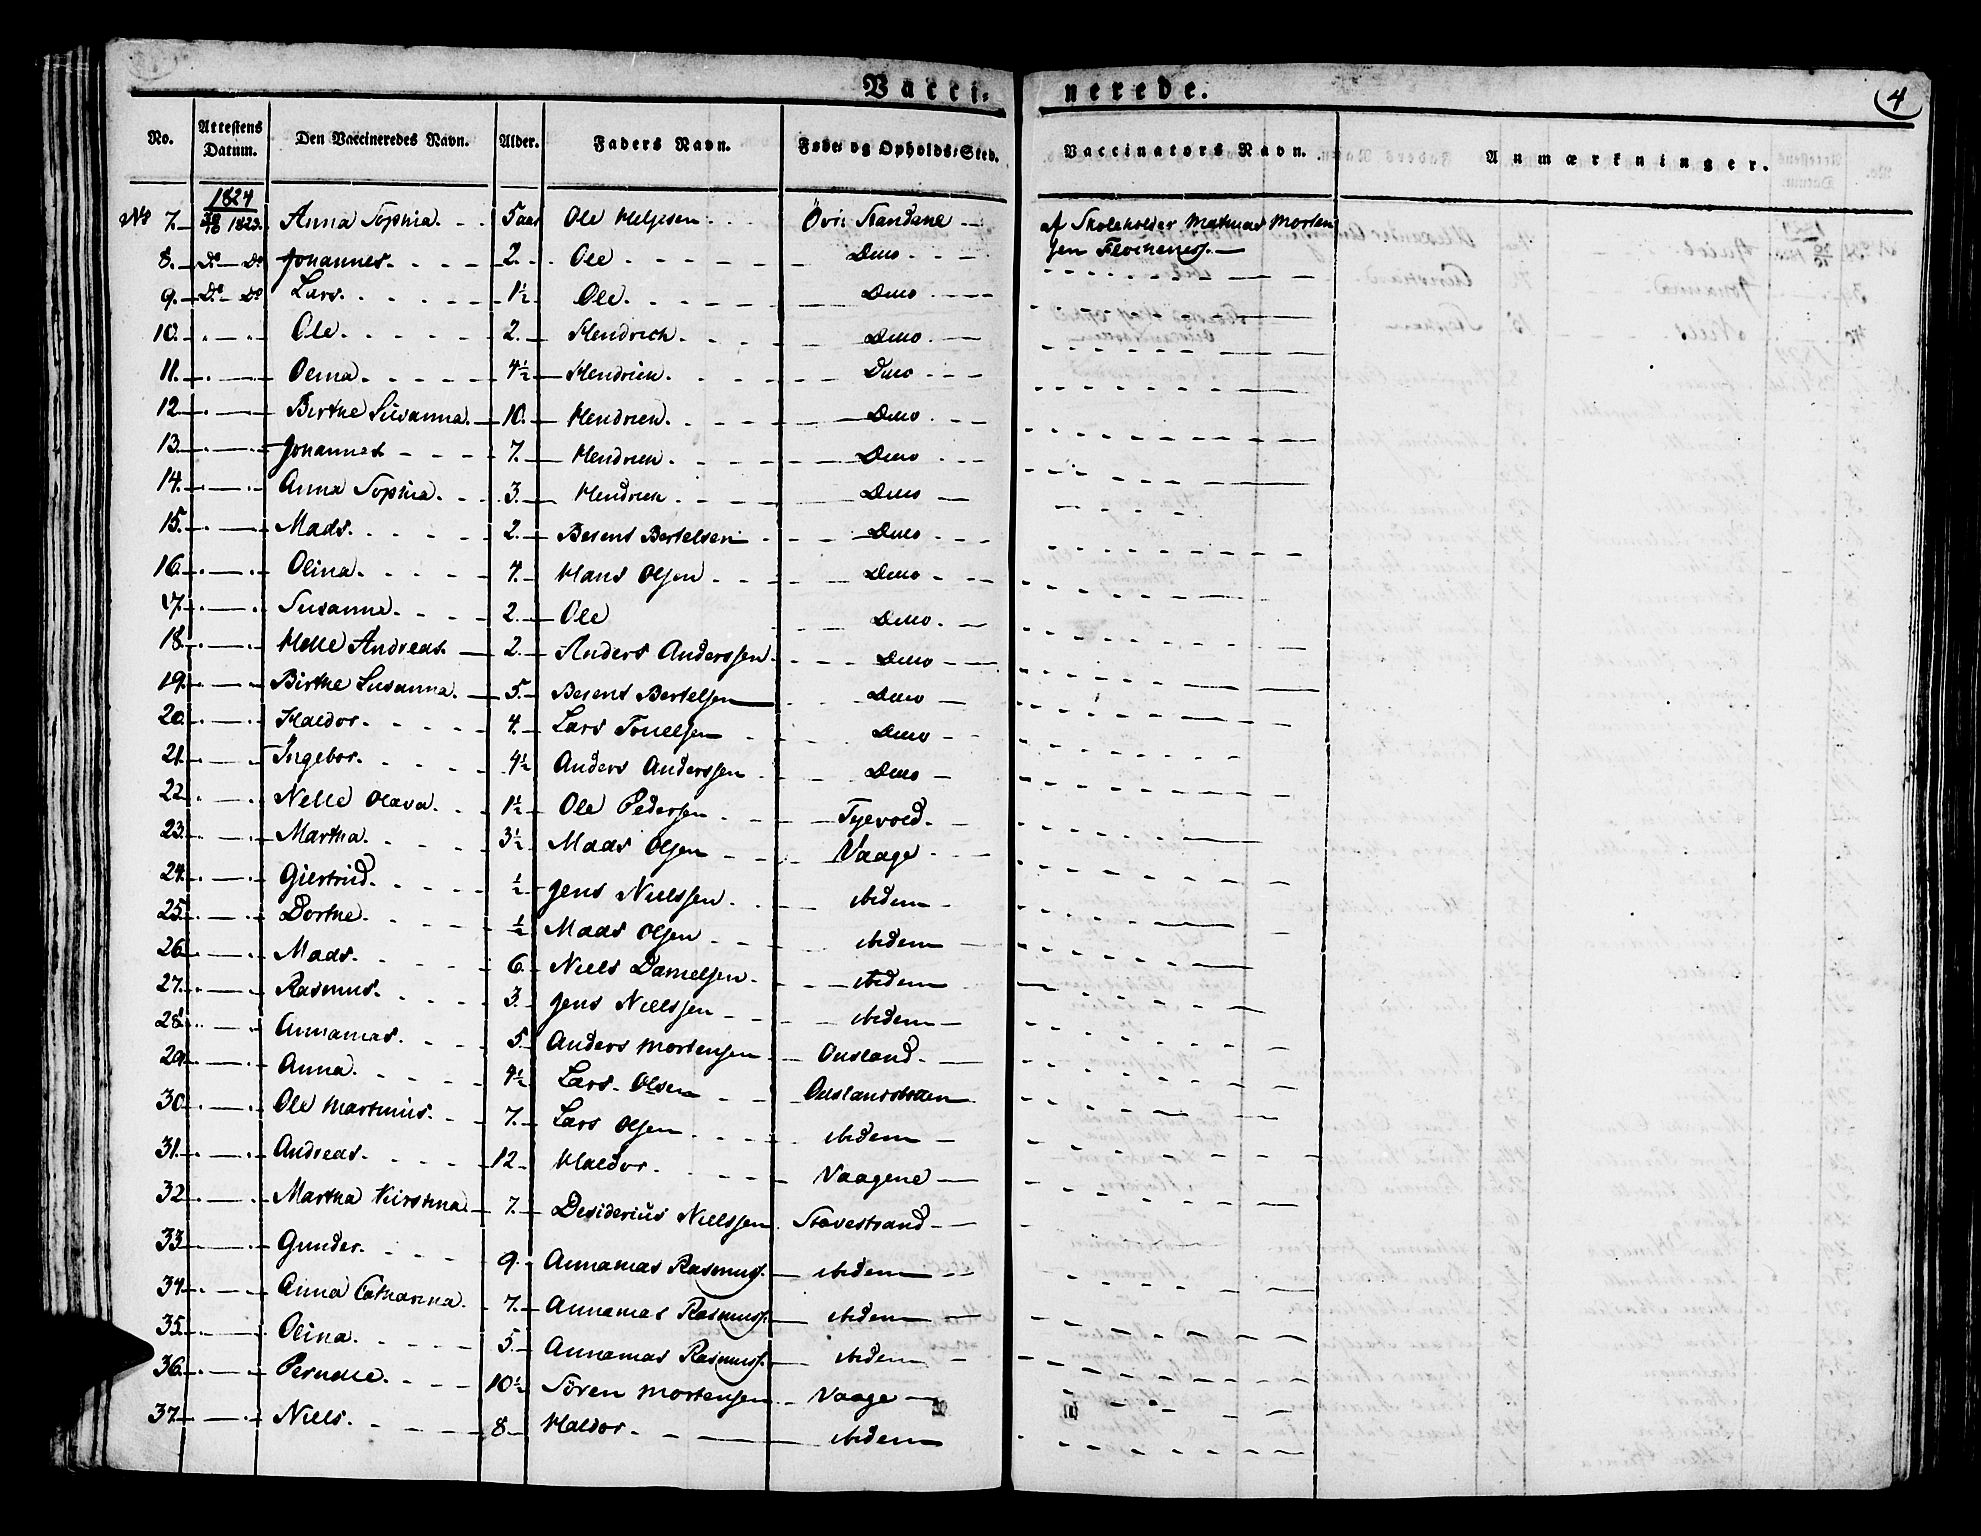 Vacci- nerede.
4
No. Attestens Datum. Den Vaccineredes Navn. Alder. Faders Navn. Føde og Opholds-Sted. Vaccinators Navn. Anmærkninger.
1824
No 7. 1823. Anna Sophia. 5 aar Ole Helgesen Övre Standane af Skoleholder Mathias Morten
sen Flochenes.
8. Do Do Johannes. 2. Ole Ditto
9. Do Do Lars. 1½ Ole. Ditto
10. Ole. 2. Hendrich. Ditto
11. Olina. 4½ Hendrich. Ditto
12. Birthe Susanna. 10. Hendrich. Ditto
13. Johannes 7. Hendrich. Ditto
14. Anna Sophia. 3. Hendrich Ditto
15. Mads. 2. Berent Bertelsen Ditto
16. Olina. 4. Hans Olsen Ditto
17. Susanne. 2. Ole Ditto
18. Helle Andreas. 2. Anders Anderssen. Ditto
19. Birthe Susanna. 5. Berent Bertelsen Ditto
20. Haldor. 4. Lars Tonnelsen Ditto
21. Ingebor. 4½ Anders Anderssen Ditto
22. Nelle Olava. 1½ Ole Pedersen Tyevold.
23. Martha. 3½ Mads Olsen Vaage
24. Giertrud. ½ Jens Nielssen ibidem
25. Dorthe. ½ Mads Olsen ibidem
26. Mads. 6. Niels Danielsen. ibidem
27. Rasmus. 3. Jens Nielssen ibidem
28. Annanias. 5. Anders Mortensen Ousland.
29. Anna. 4½ Lars Olsen Ouslandstrøen
30. Ole Martinus. 7. Lars Olsen ibidem
31. Andreas. 12. Haldor. Vaagene
32. Martha Kirstina. 7. Desiderius Nielssen Stavestrand
33. Gunder. 9. Annanias Rasmuss. ibidem
34. Anna Catharina. 7. Annanias Rasmuss. ibidem
35. Olina. 5. Annanias Rasmuss. ibidem
36. Pernelle. 10½ Sören Mortensen Vaage
37. Niels. 8 Haldor. ibidem